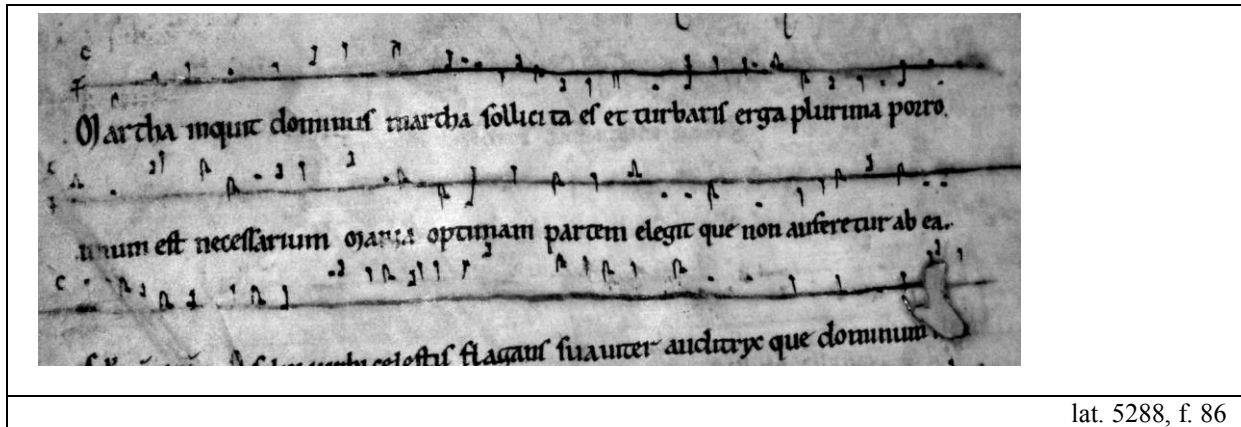 c
F
Martha inquit dominus martha sollicita es et turbaris erga plurima porro.
c
F
unum est necessarium maria optimam partem elegit que non auferetur ab ea.
c
celestis flagans suauiter auditryx que dominum
lat. 5288, f. 86